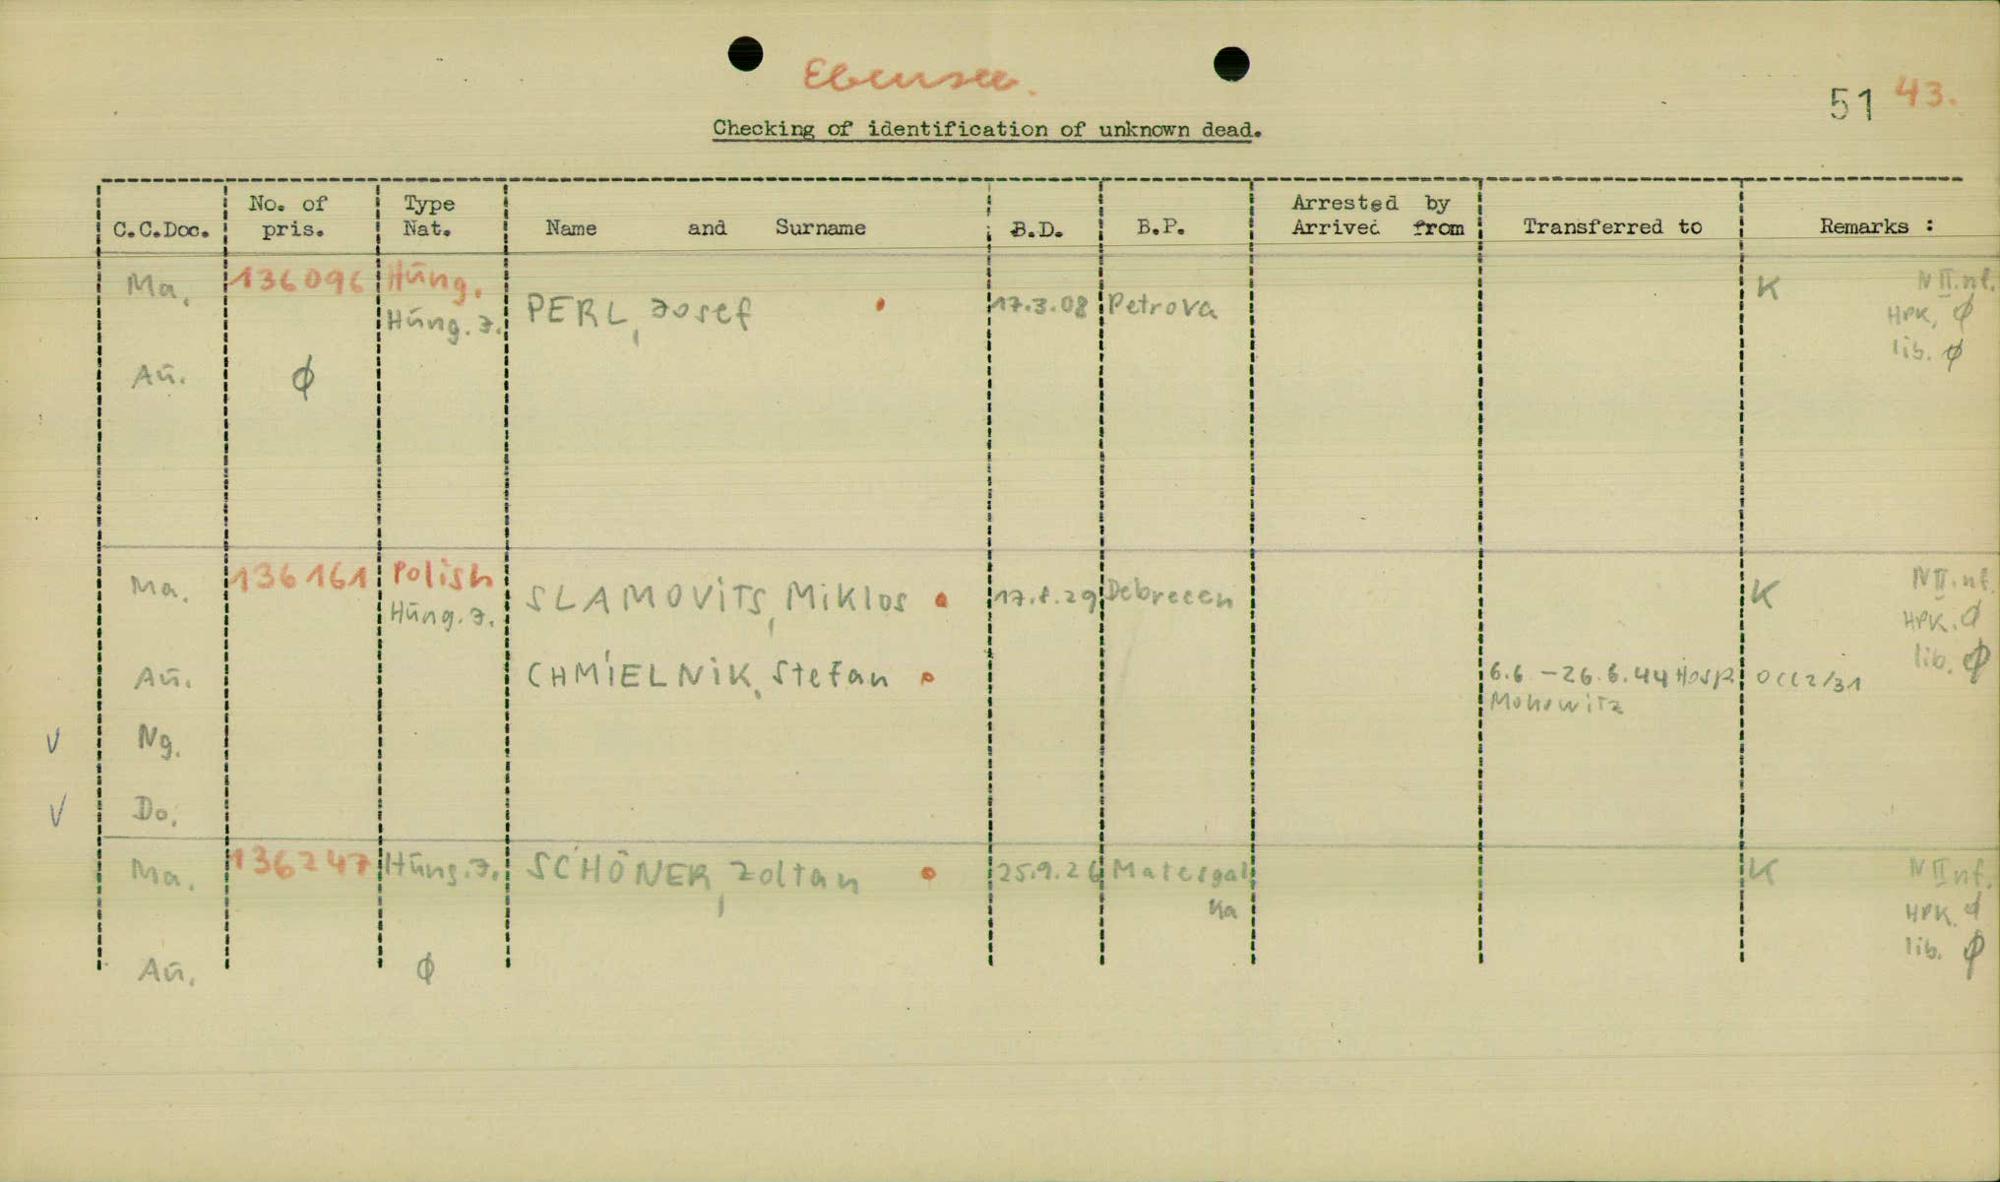 Ebensee.
51 43.
Checking of identification of unknown dead.
C.C.Doc. No. of pris. Type Nat. Name and Surname B.D. B.P. Arrested by Arrived from Transferred to Remarks :
Ma. 136096 Hŭng. K N II. nf.
Hŭng. J. PERL, Josef 17.3.08 Petrova HPK, ϕ
lib. ϕ
Aŭ. ϕ
Ma. 136161 Polish K N II. nf.
Hŭng. J. SLAMOViTS, Miklos 17.8.29 Debrecen HPK. ϕ
lib. ϕ
Aŭ. CHMIELNiK, Stefan 6.6 – 26.6.44 Hosp. OCC2/31
Monowitz
V Ng.
V Do.
Ma. 136247 Hŭng. J. SCHÖNER, Zoltan 25.9.26 Mateszal K N II nf.
ka HPK. ϕ
lib. ϕ
Aŭ. ϕ